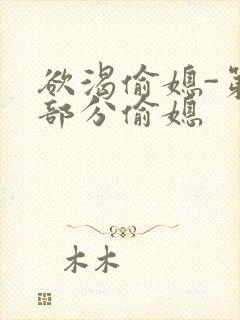 欲渴偷媳-第
部分偷媳
木木